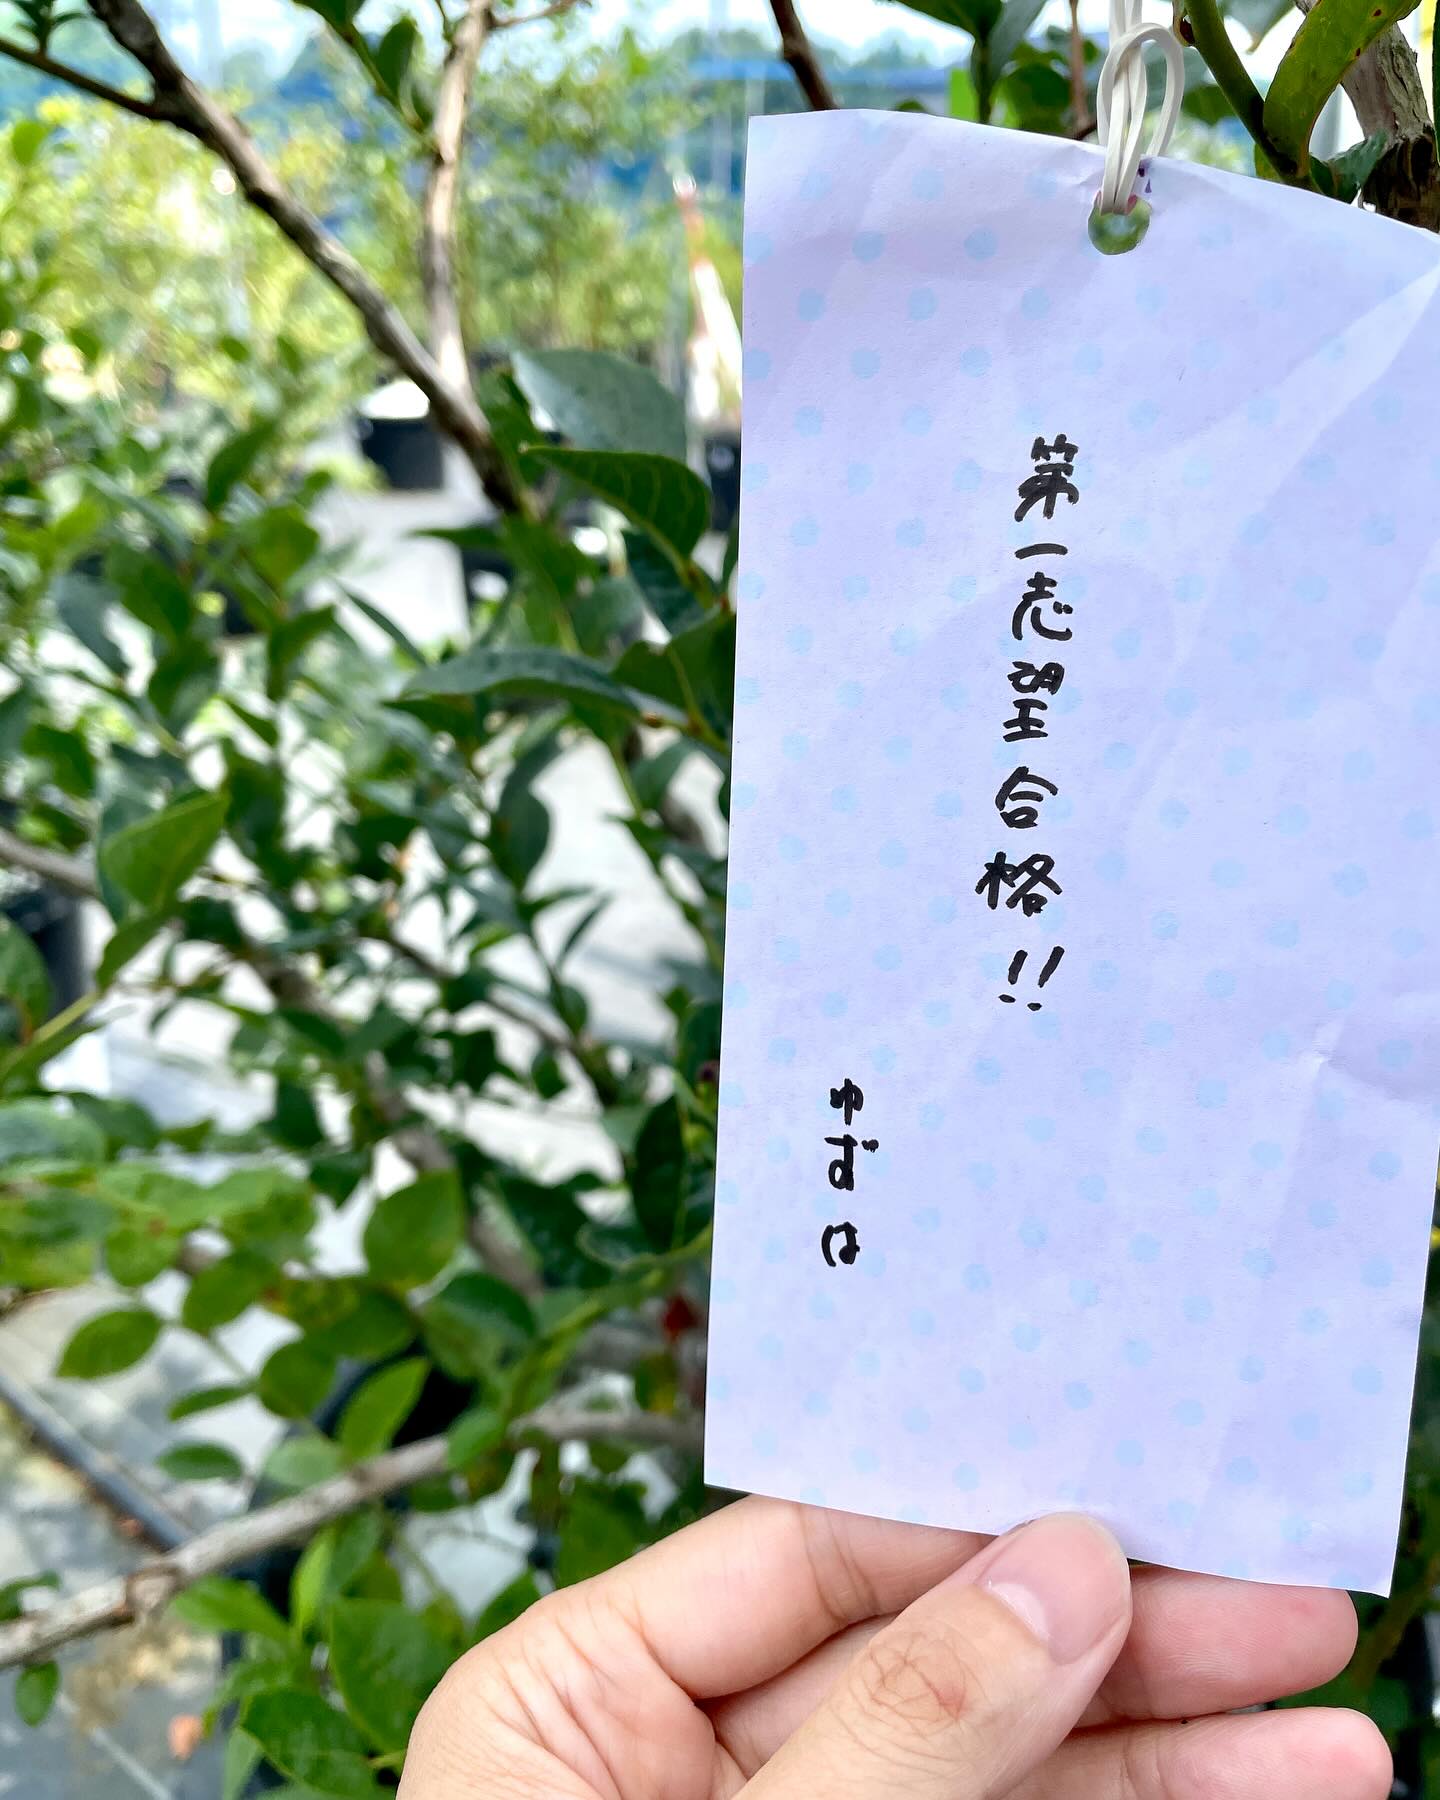 第一志望合格!!
ゆずは